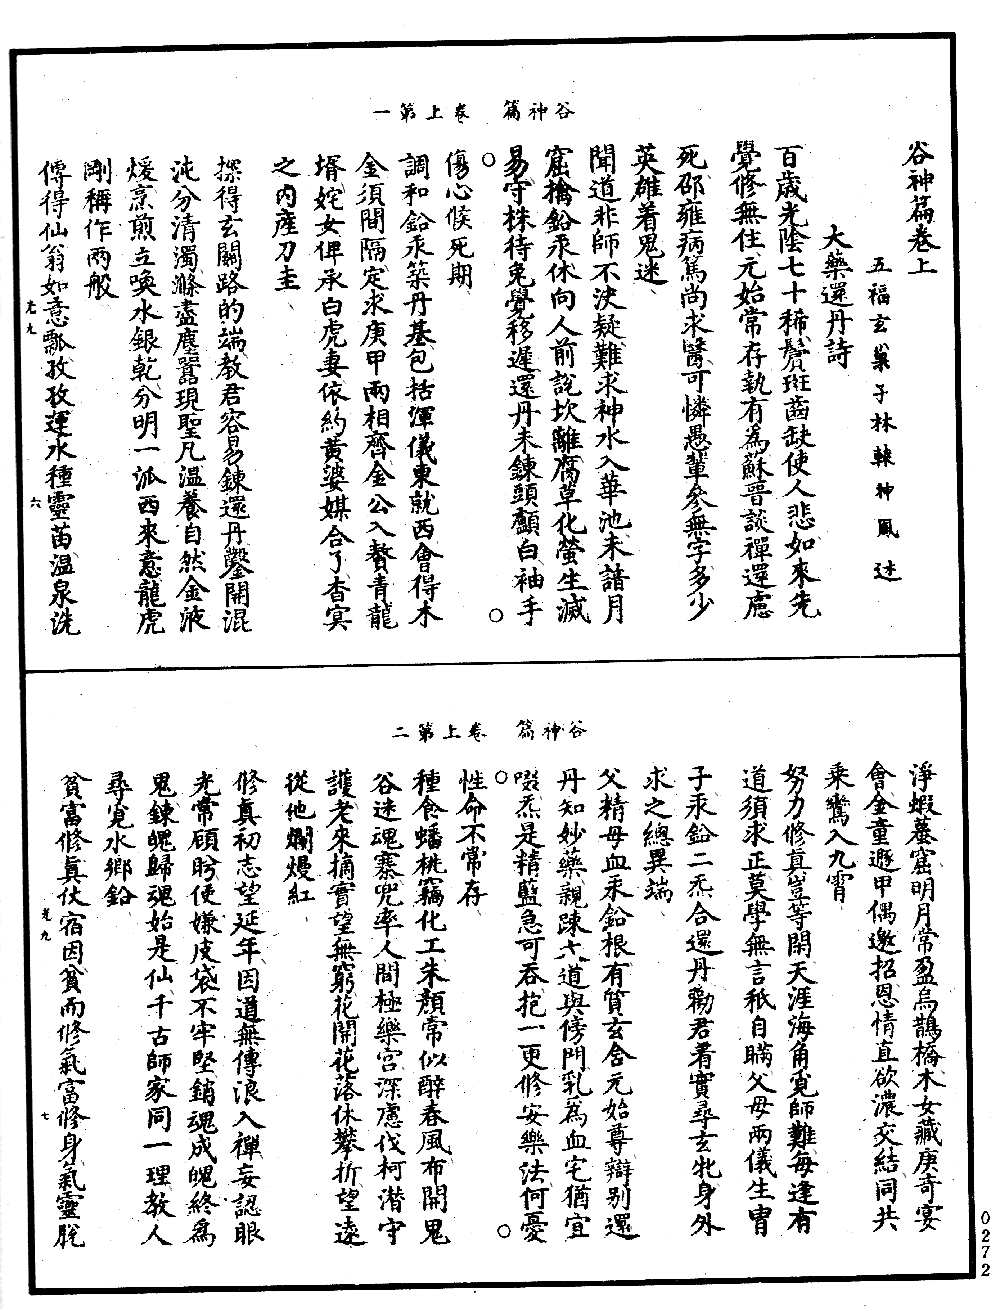 谷神篇　卷上第一
谷神篇卷上
五福玄巢子林轅神鳳述
大藥還丹詩
百歲光陰七十稀鬢斑齒缺使人悲如來先
覺修無住元始常存執有為蘇晉談禪還慮
死邵雍病篤尚求醫可憐愚輩參無字多少
英雄着鬼迷
聞道非師不決疑難求神水入華池未諳月
窟擒鉛汞休向人前說坎離腐草化螢生滅
易守株待兔覺移遲還丹未鍊頭顱白袖手
傷心候死期
調和鉛汞築丹基包括渾儀東就西會得木
金須間隔定求庚甲兩相齊金公入贅青龍
壻姹女俾承白虎妻依約黃婆媒合了杳冥
之內產刀圭
探得玄關路的端教君容易鍊還丹鑿開混
沌分清濁滌盡塵囂現聖凡溫養自然金液
煖烹煎立喚水銀乾分明一派西來意龍虎
剛稱作兩般
傳得仙翁如意瓢孜孜運水種靈苗溫泉洗
光九
六
谷神篇　卷上第二
淨蝦蟇窟明月常盈烏鵲橋木女藏庚奇宴
會金童遯甲偶邀招恩情直欲濃交結同共
乘鸞入九霄
努力修真豈等閑天涯海角覓師難每逢有
道須求正莫學無言秖自瞞父母兩儀生胄
子汞鉛二炁合還丹勸君着實尋玄牝身外
求之總異端
父精母血汞鉛根有質玄含元始尊辯別還
丹知妙藥親踈六道與傍門乳為血宅猶宜
啜炁是精藍急可吞抱一更修安樂法何憂
性命不常存
種食蟠桃竊化工朱顏常似醉春風布開鬼
谷迷魂寨兜率人間極樂宮深慮伐柯潛守
護老來摘實望無窮花開花落休攀折望遠
從他爛熳紅
修真初志望延年因道無傳浪入禪妄認眼
光常顧盻使嫌皮袋不牢堅銷魂成魄終為
鬼鍊魄歸魂始是仙千古師家同一理教人
尋覓水鄉鉛
貧富修真仗宿因貧而修氣富修身氣靈脫
光九
七
0272